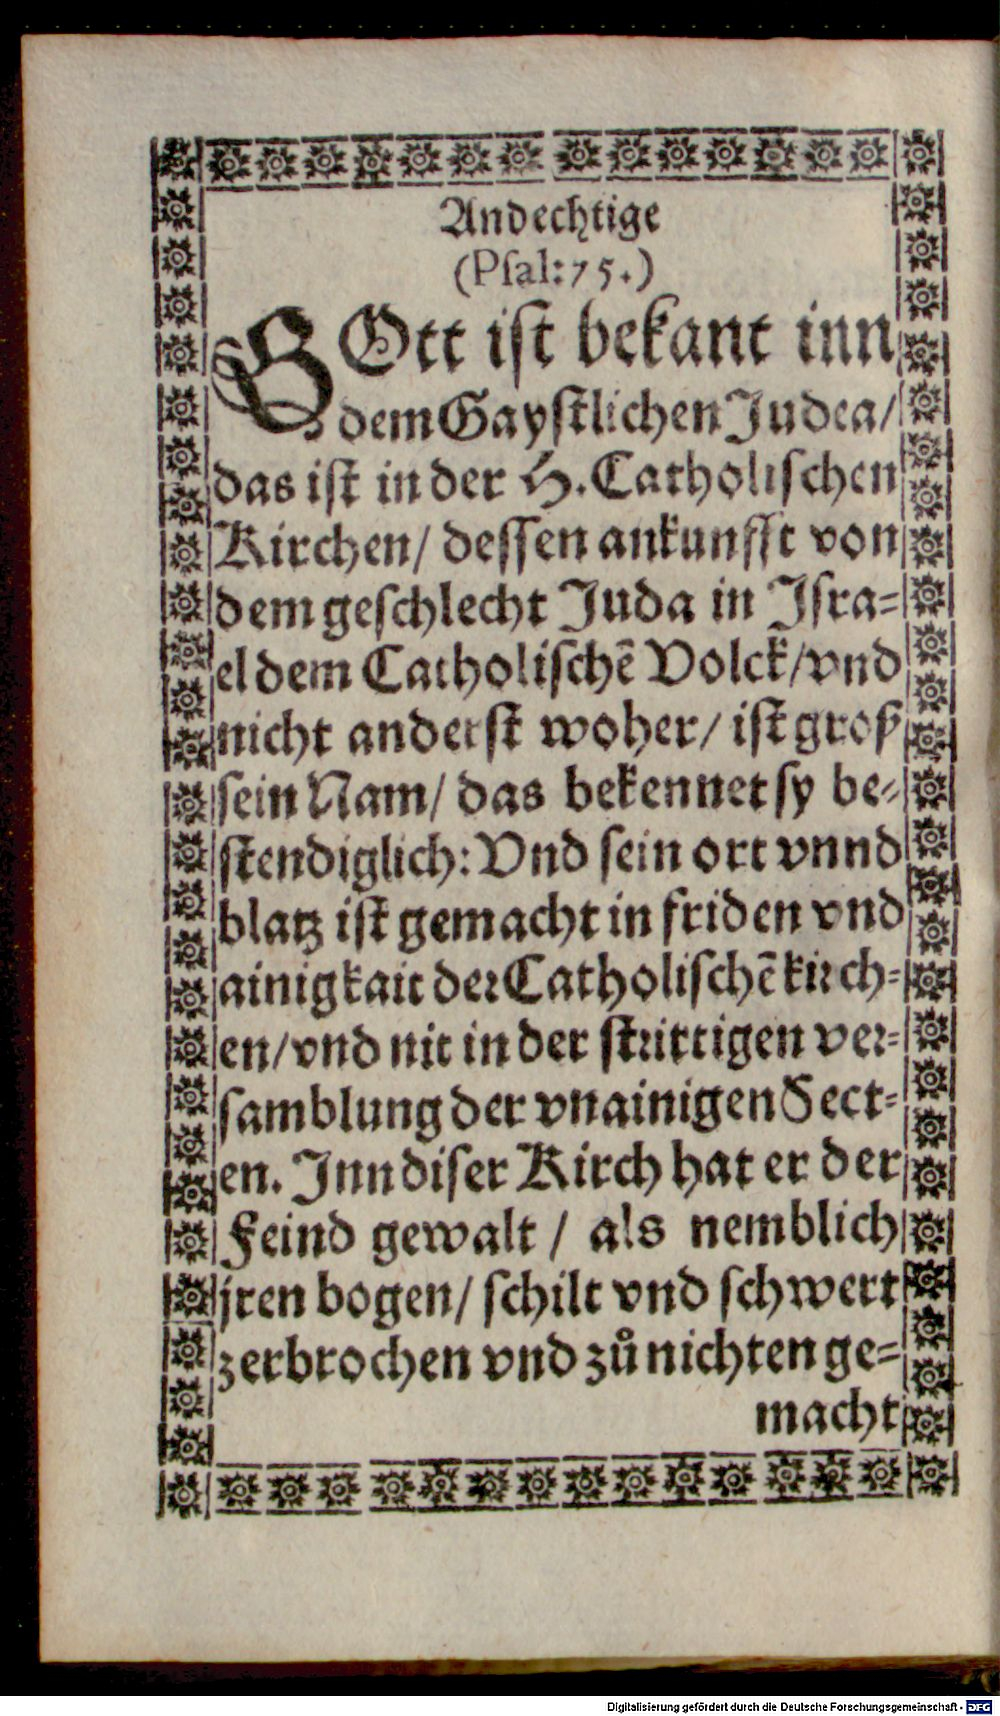 Andechtige
(Psal: 75.)
GOtt ist bekant inn
dem Gaystlichen Judea/
das ist in der H. Catholischen
Kirchen/ dessen ankunfft von
dem geschlecht Juda in Isra-
el dem Catholischē Volck/ vnd
nicht anderst woher/ ist groß
sein Nam/ das bekennet sy be-
stendiglich: Vnd sein ort vnnd
blatz ist gemacht in friden vnd
ainigkait der Catholischē kirch-
en/ vnd nit in der strittigen ver-
samblung der vnainigen Sect-
en. Inn diser Kirch hat er der
Feind gewalt / als nemblich
jren bogen/ schilt vnd schwert
zerbrochen vnd zů nichten ge-
macht
Digitalisierung gefördert durch die Deutsche Forschungsgemeinschaft - DFG